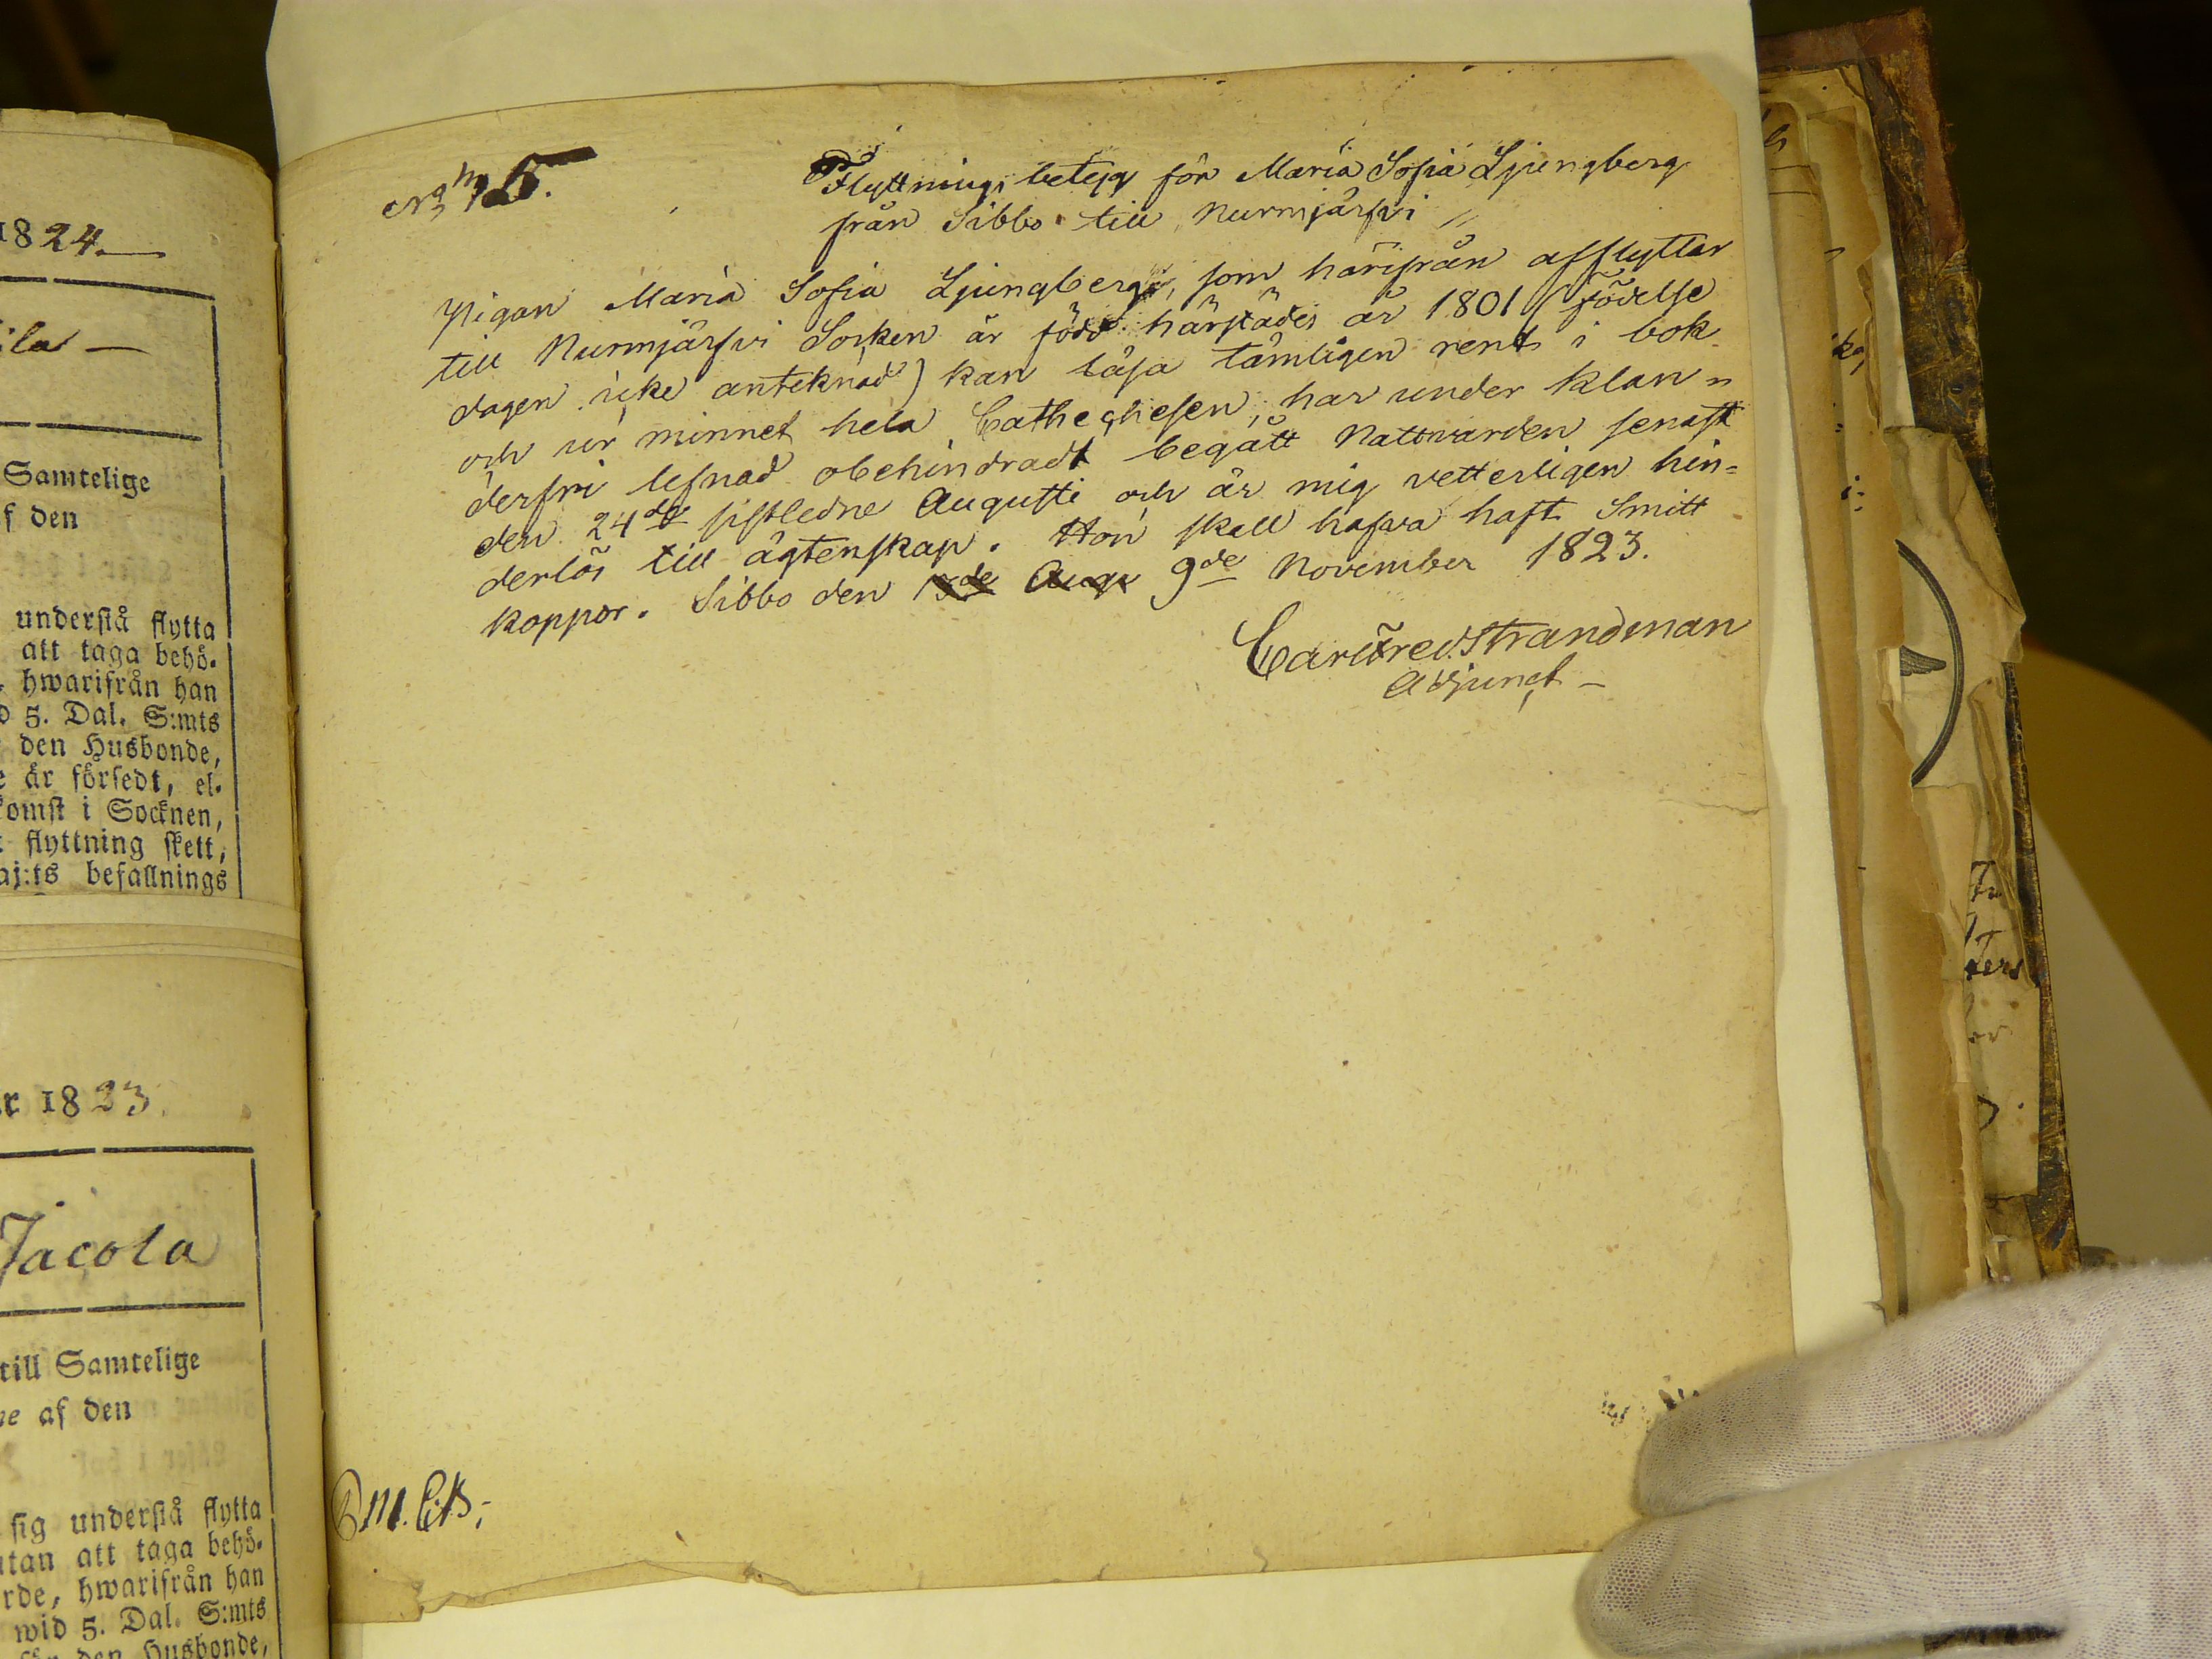 1824.
ila
Samtelige
f den
understå flytta
att taga behö.
, hwarifrån han
d 5. Dal. S:mts
den Husbonde,
e är försedt, el.
komst i Socknen,
flyttning skett,
aj:ts befallnings
r 1823.
Jacola
till Samtelige
ne af den
sig understå flytta
utan att taga behö.
rde, hwarifrån han
wid 5. Dal. S:mts
för den Husbonde,
Flyttnings betyg för Maria Sofia Ljungberg
från Sibbo till Nurmjärfvi //
Pigan Maria Sofia Ljungberg, som härifrån afflyttar
till Nurmjärfvi Socken är född härstädes år 1801 (födelse
dagen icke anteknad) kan läsa tämligen rent i bok
och ur minnet hela Cathechesen, har under klan=
derfri lefnad obehindradt begått Nattvarden senast
den 24de sistledne Augusti och är mig vetterligen hin=
derlös till ägtenskap. Hon skall hafva haft Smitt
koppor. Sibbo den 9de November 1823.
Carl Fred. Strandman
Adjunct